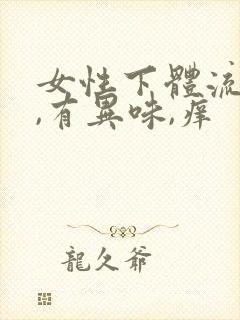 女性下體流
,有異味,癢
龍久爺